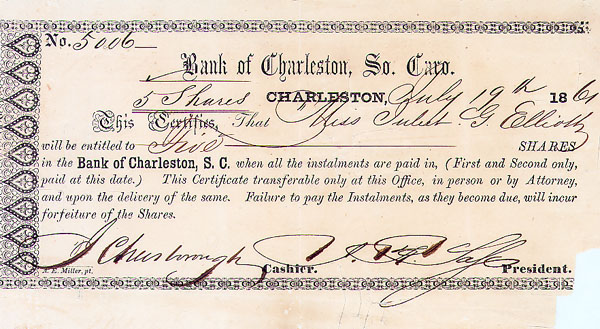 No. 5006
Bank of Charleston, So. Caro.
5 Shares CHARLESTON, July 19th 1861
This Certifies, That Miss Juliet G. Elliott
will be entitled to Five SHARES
in the Bank of Charleston, S. C. when all the instalments are paid in, (First and Second only,
paid at this date.) This Certificate transferable only at this Office, in person or by Attorney,
and upon the delivery of the same. Failure to pay the Instalments, as they become due, will incur
forfeiture of the Shares.
J Cheesborough
A. E. Miller, pt. Cashier. President.